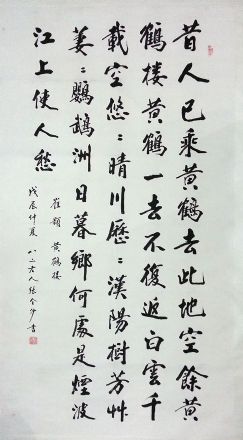 昔人已乘黄鶴去此地空餘黄
鶴樓黄鶴一去不復返白雲千
載空悠〻晴川歷〻漢陽樹芳艸
萋〻鸚鵡洲日暮鄉何處是煙波
江上使人愁
崔顥 黄鶴樓
戊辰仲夏 八二老人張令沙書